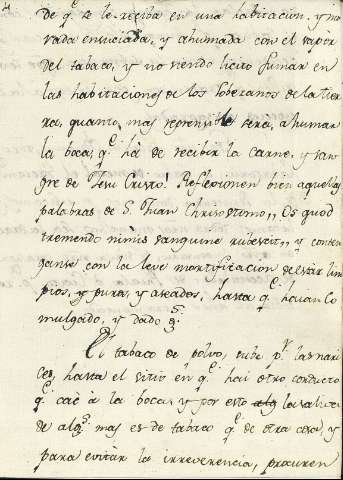 de q.e se le reciba en una habitacion, y no
vada ensuciada, y ahumada con el vapor
del tabaco, y no siendo licito fumar en
las habitaciones de los Soberanos de la tier
ra, quanto mas reprensible sera, ahumar
la boca, q.e hà de recibir la carne, y san
gre de Jesu Cristo! Reflexionen bien aquellas
palabras de S. Juan Chrisostomo,, Os quod
tremendo nimis sanguine rubescit,, y conten
ganse con la leve mortificacion de estàr lim
pios, y puros, y aseados, hasta q.e haian co
mulgado, y dado
El tabaco de polvo, sube p.r las nari
ces, hasta el sitio en q.e hai otro conducto
q.e caè à la boca, y por esto la saliva
de alg.s mas es de tabaco q.e de otra cosa, y
para evitàr la irreverencia, procuren